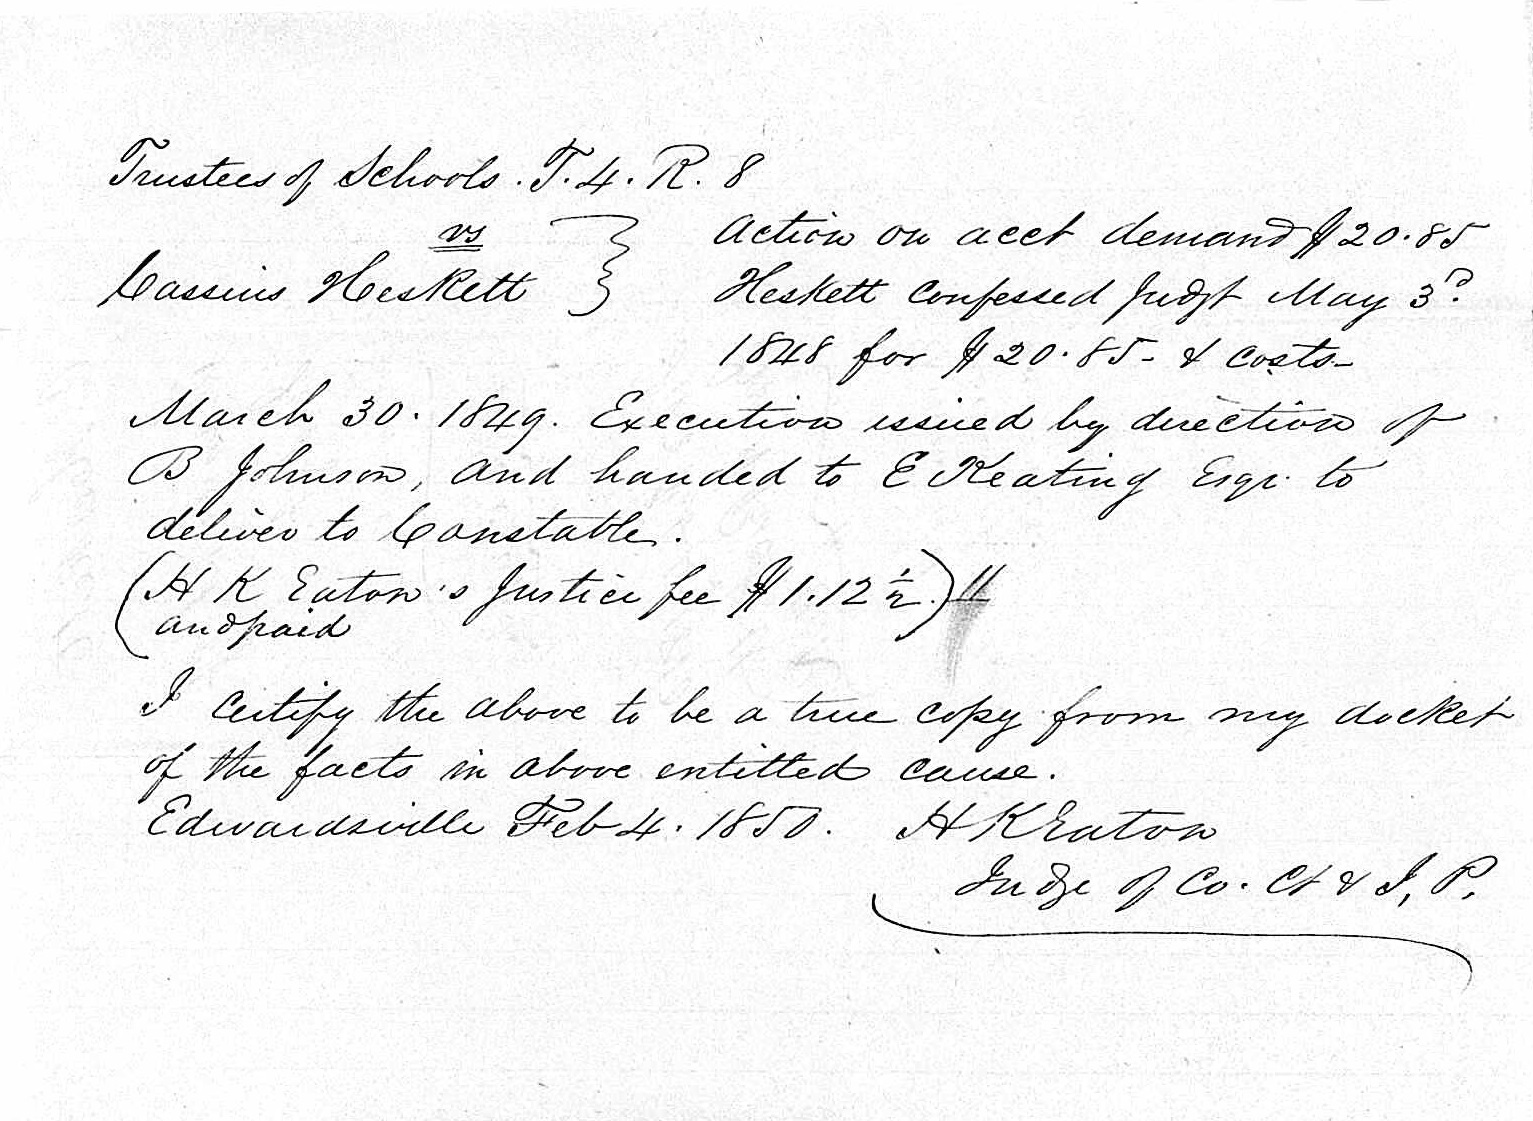 Trustees of Schools. T. 4. R. 8
vs
Cassius Heskett
Action on acct demand $20.85
Heskett confessed Judgt May 3d.
1848 for $20.85- & costs-
March 30. 1849. Execution issued by direction of
B Johnson, and handed to E Keating Esqr. to
deliver to Constable.
(H K Eaton's Justice fee $1.12 1/2.)
and paid
I certify the above to be a true copy from my docket
of the facts in above entitled cause.
Edwardsville Feb 4. 1850. H K Eaton
Judge of Co. Ct & J, P,